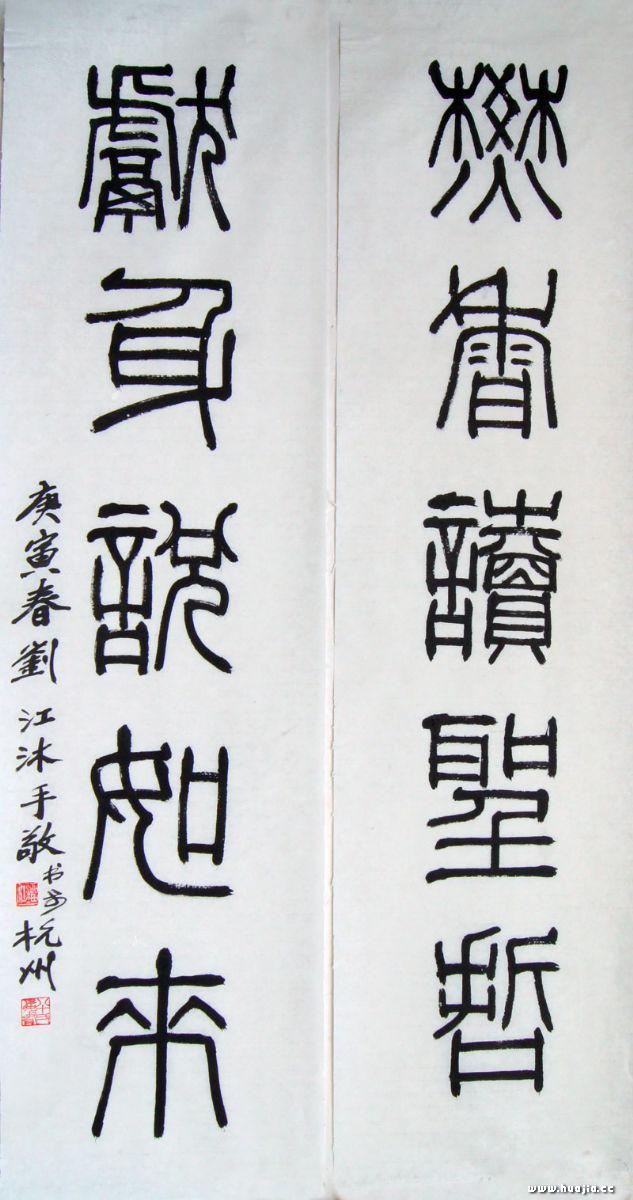 焚香讀聖哲
獻身說如來
庚寅春劉江沐手敬书於杭州
www.huajia.cc